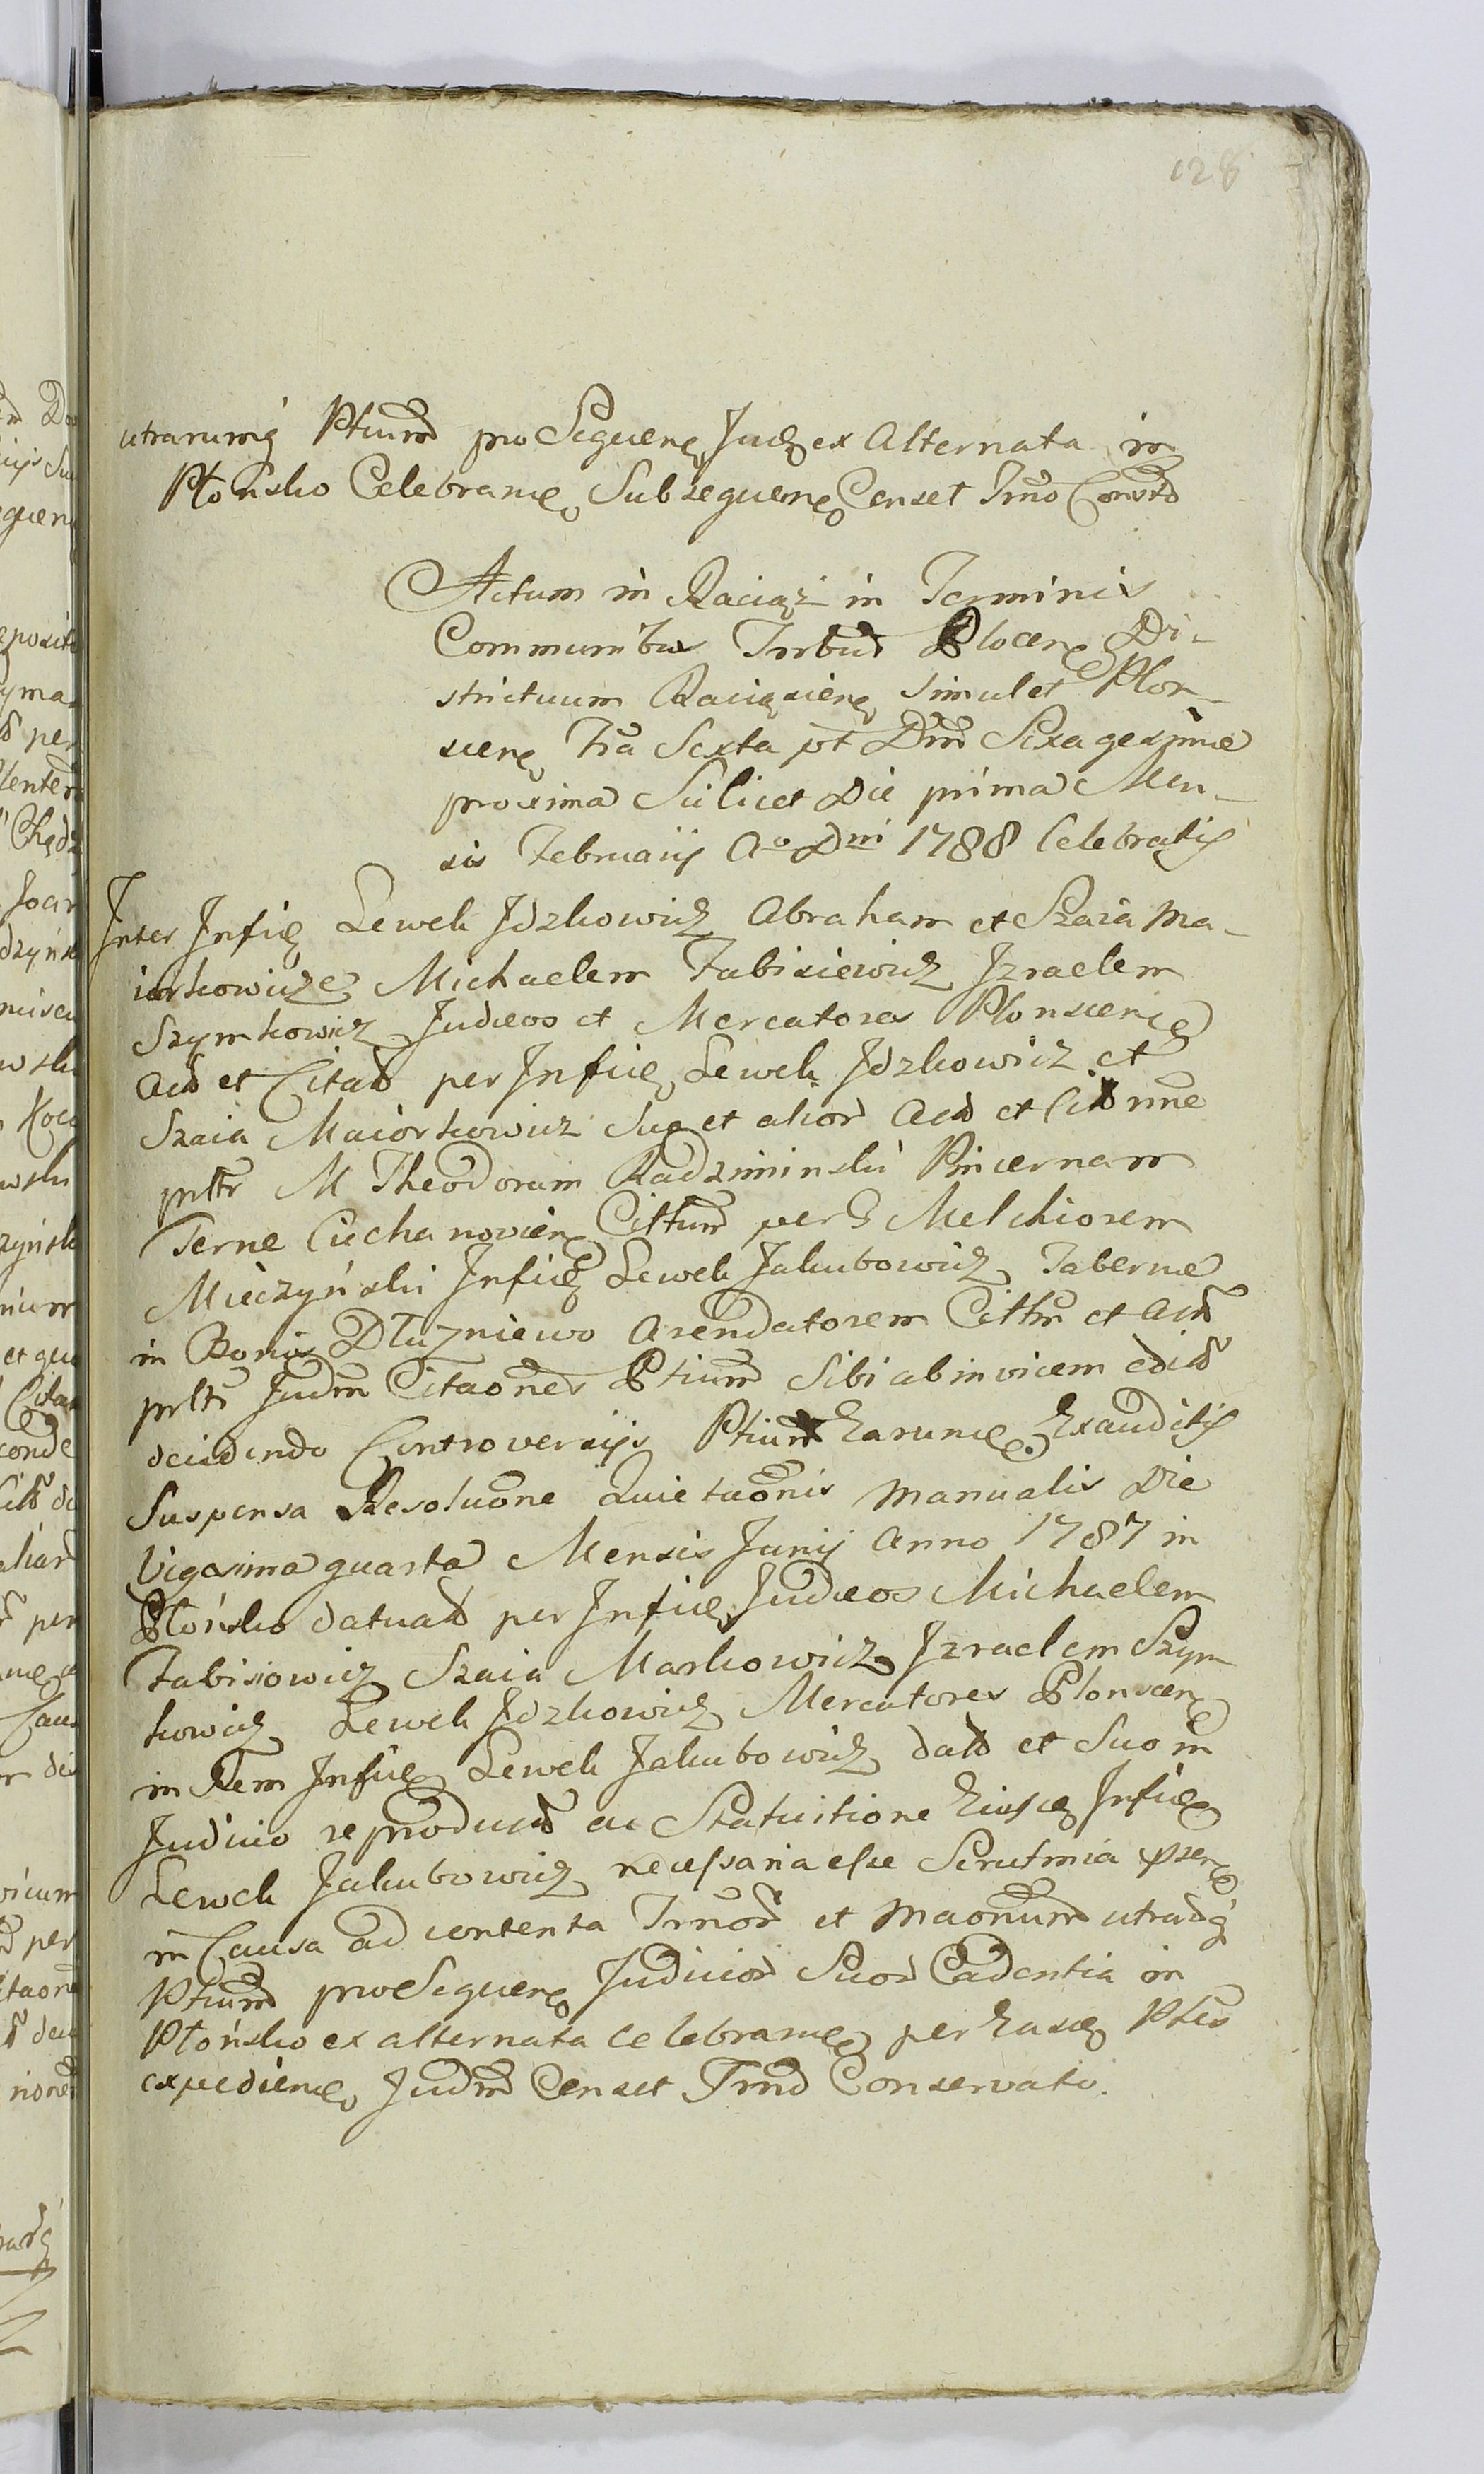 128
utrarumq Ptium pro Sequen Judex Alternata in
Płońsko Celebrane Subsequen Censet Trno Consvto
Actum in Raciąż in Terminis
Communibus Trrbus Plocen Di-
strictuum Raciąsien simul et Plon-
scien Fria Sexta pt Dim Sexagesimæ
proxima Scilicet Die prima Men-
sis Februarij Ao Dni 1788 Celebratis
Inter Infid Lewek Jdzkowicz Abraham et Szaia Ma-
iorkowicze Michaelem Fabisiewicz Jzraelem
Szymkowicz Judæos et Mercatores Plonscen
Act et Citatt per Infid Lewek Jdzkowicz et
Szaia Maiorkowicz Suo et alior Act et Citt nne
prltr M Theodorum Radziminski Pincernam
Terræ Ciechanovien Cittum per G Melchiorem
Mieczyński Infid Lewek Jakubowicz Tabernæ
in Bonis Dłużniewo Arendatorem Cittm et Actt
prltr Judm Citaones Ptium Sibi abinvicem editt
decidendo Controversijs Ptium Earumd Exauditis
Suspensa Resoluone Quietaonis Manualis Die
Vigesima quarta Mensis Junij Anno 1787 in
Płońsko datuatt per Infid Judæos Michaelem
Fabisiowicz Szaia Markowicz Jzraelem Szym
kowicz Lewek Jdzkowicz Mercatores Plonscen
in Rem Infid Lewek Jakubowicz datt et Suo in
Judicio reproductt ac Statuitione Eiusd Infid
Lewek Jakubowicz necessaria esse Scrutinia psen
in Causa ad contenta Trnor et Maonum utrarq
Ptium pro Sequen Judicior Suor Cadentia in
Płońsko ex alternata celebrane per Easd Ptes
expediend Judm Censet Trno Conservato.